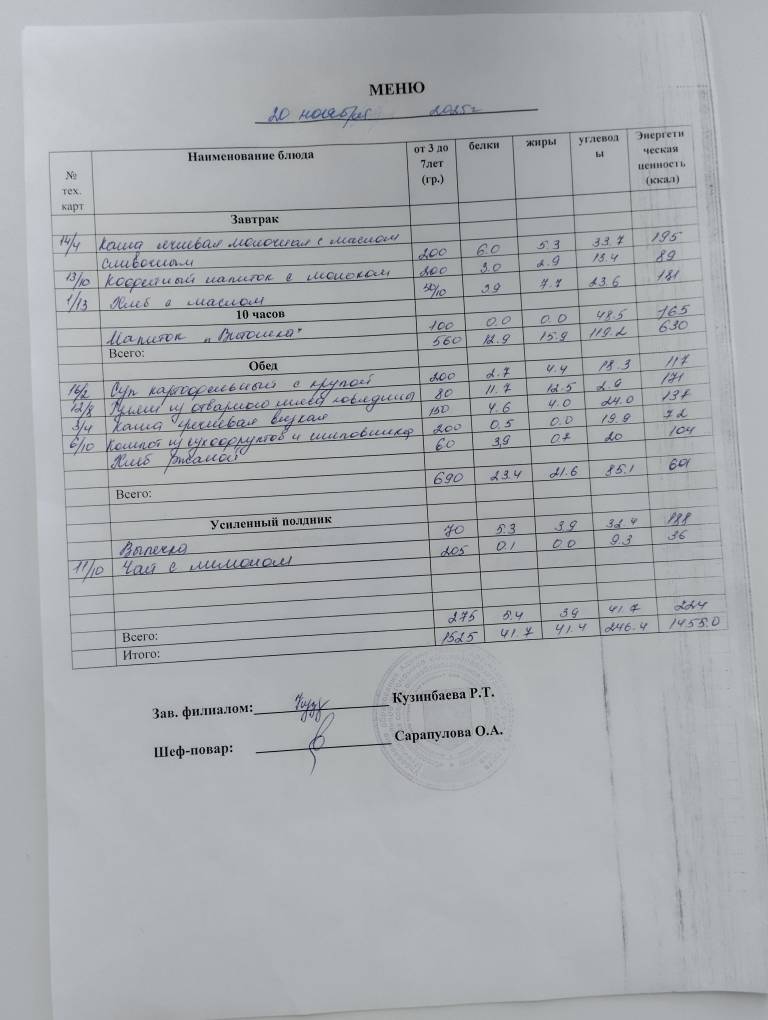 МЕНЮ
20 ноября 2025г
№ тех. карт Наименование блюда от 3 до 7лет (гр.) белки жиры углеводы Энергетическая ценность (ккал)
Завтрак
14/4 Каша ячневая молочная с маслом
сливочным 200 6.0 5.3 33.7 195
13/10 Кофейный напиток с молоком 200 3.0 2.9 13.4 89
1/13 Хлеб с маслом 30/10 3.9 7.7 23.6 181
10 часов
Напиток "Витошка" 100 0.0 0.0 48.5 165
Всего: 560 12.9 15.9 119.2 630
Обед
16/2 Суп картофельный с крупой 200 2.7 4.4 18.3 117
12/8 Гуляш из отварного мяса говядина 80 11.7 12.5 2.9 171
3/4 Каша гречневая вязкая 150 4.6 4.0 24.0 137
6/10 Компот из сухофруктов и шиповника 200 0.5 0.0 19.9 72
Хлеб ржаной 60 3,9 0.7 20 104
Всего: 690 23.4 21.6 85.1 601
Усиленный полдник
Выпечка 70 5.3 3.9 32.4 188
11/10 Чай с лимоном 205 0.1 0.0 9.3 36
Всего: 275 5.4 3.9 41.7 224
Итого: 1525 41.7 41.4 246.4 1455.0
Зав. филиалом: Кузинбаева Р.Т.
Шеф-повар: Сарапулова О.А.